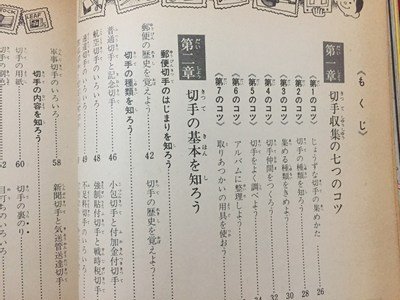 《もくじ》
第一章 切手収集の七つのコツ
《第1のコツ》 じょうずな切手の集めかた 26
《第2のコツ》 切手の種類を知ろう 28
《第3のコツ》 集める種類をきめよう 30
《第4のコツ》 切手仲間をつくろう
《第5のコツ》 切手をよく調べよう
《第6のコツ》 アルバムに整理しよう
《第7のコツ》 取りあつかいの用具を使おう
第二章 切手の基本を知ろう
郵便切手のはじまりを知ろう
郵便の歴史を覚えよう 42
切手の歴史を覚えよう
切手の種類を知ろう
普通切手と記念切手 46
小包切手と付加金付切手
航空切手のいろいろ 48
強制貼付切手と戦時税切手
49
不足料切手のいろいろ
軍事切手のいろいろ 58
新聞切手と気送管速達切手
切手の内容を知ろう
切手の用紙 60
切手の裏のり
52
目打のいろいろ
LEAF